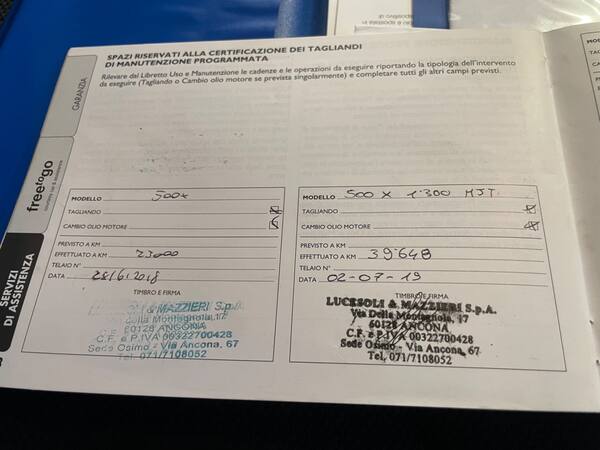 SPAZI RISERVATI ALLA CERTIFICAZIONE DEI TAGLIANDI
DI MANUTENZIONE PROGRAMMATA
Rilevare dal Libretto Uso e Manutenzione le cadenze e le operazioni da eseguire riportando la tipologia dell'intervento
da eseguire (Tagliando o Cambio olio motore se prevista singolarmente) e completare tutti gli altri campi previsti.
GARANZIA
freetogo
SERVIZI
DI ASSISTENZA
MODELLO 500x
TAGLIANDO
CAMBIO OLIO MOTORE
PREVISTO A KM
EFFETTUATO A KM 23000
TELAIO N°
DATA 28/6/2018
TIMBRO E FIRMA
& MAZZIERI S.p.A.
Via Della Montagnola, 17
60128 ANCONA
C.F. e P.IVA 00322700428
Sede Osimo - Via Ancona, 67
Tel. 071/7108052
MODELLO 500 X 1300 MJT
TAGLIANDO
CAMBIO OLIO MOTORE
PREVISTO A KM
EFFETTUATO A KM 39648
TELAIO N°
DATA 02-07-19
TIMBRO E FIRMA
LUCESOLI & MAZZIERI S.p.A.
Via Della Montagnola, 17
60128 ANCONA
C.F. e P.IVA 00322700428
Sede Osimo - Via Ancona, 67
Tel. 071/7108052